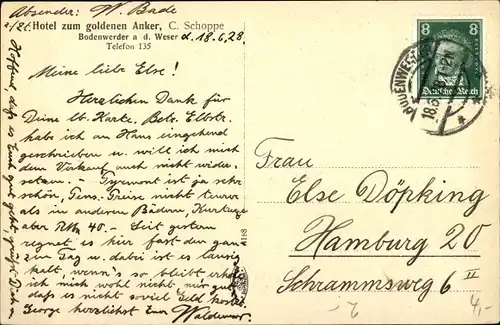 Absender: W. Bade
z. Zt. Hotel zum goldenen Anker, C. Schoppe
Bodenwerder a d. Weser d. 18.6.28.
Telefon 135
Meine liebe Else!
Herzlichen Dank für
Deine lb. Karte. Betr. Elbstr.
habe ich an Hans eingehend
geschrieben u. will ich mich
dem Verkauf auch nicht wider-
setzen. - Pyrmont ist ja sehr
schön, Pens. Preise nicht teurer
als in anderen Bädern, Kurtaxe
aber RM 40.- Seit gestern
regnet es hier fast den gan-
zen Tag u. dabei ist es lausig
kalt, wenn's so bleibt erhole
ich mich wohl nicht, nur gut
daß es nicht soviel Geld kostet.
George herzlichst Euer Waldemar
Hoffend daß es Euch gut geht, grüßt Dich u.
A188
8 8
Deutsches Reich
BODENWERDER
18.6.
Frau
Else Döpking
Hamburg 20
Schrammsweg 6 II
4,-